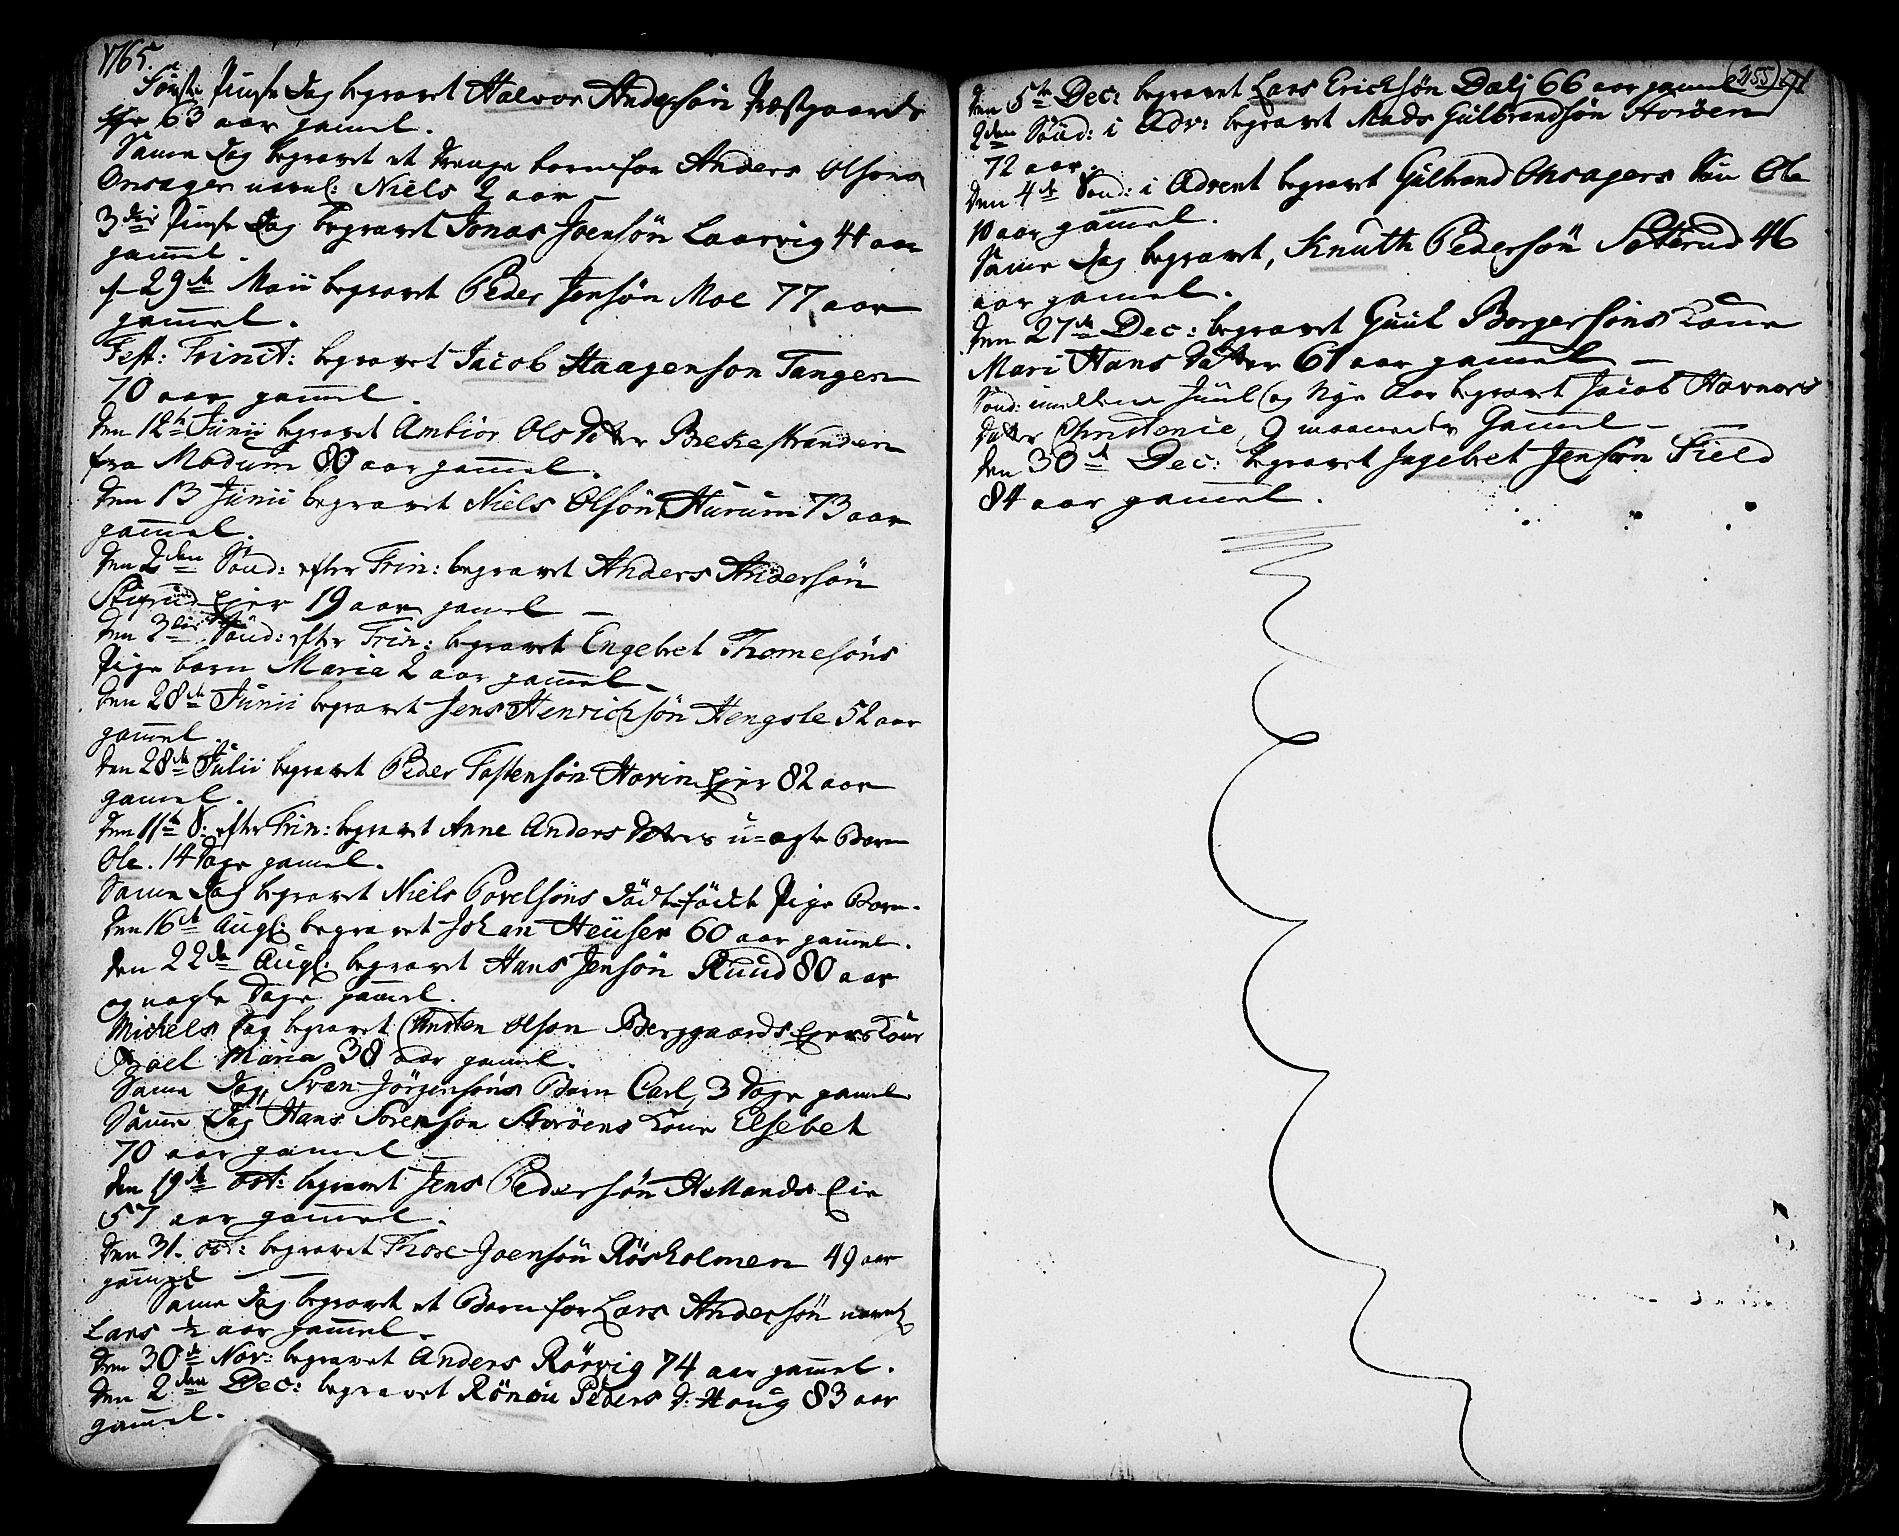 1765.
Pinse Dag begravet Halvor Andersøn Præstgaards
Eje 63 aar gamel.
Same Dag begravet et Drenge barn for Anders Olsøns
Onsager navnl: Niels 2 aar —
3die Pinse Dag begravet Jonas Joensøn Laarvig 44 aar
gam̅el.
d. 29de Maii begravet Peder Jensøn Moe 77 aar
gam̅el.
Fest: Trinit: begravet Jacob Haagenson Tangen
70 aar gam̅el.
Den 12te Junii begravet Ambior Ols Datter Brekestranden
fra Modum 80 aar gam̅el.
Den 13 Junii begravet Niels Olsøn Hurum 73 aar
gam̅el.
Den 2den Sønd: efter Trin: begravet Anders Andersøn
Eier 19 aar gamel —
Den 3die Sønd: efter Trin: begravet Engebret Thomesøns
Pige barn Maria 2 aar gam̅el.
Den 28de Junii begravet Jens Henrichsøn Hengsle 52 aar
gam̅el.
Den 28de Julii begravet Peder Tostensøn Horin Eier 82 aar
gamel.
Den 11te S: efter Trin: begravet Anne Anders Datters u-ægte Barn
Ole. 14 Dage gamel.
Same Dag begravet Niels Povelsøns Dødtfødte Pige Barn.
Den 16de Augs: begravet Johan Heüser 60 aar gam̅el.
Den 22de Augs: begravet Hans Jensøn Ruud 80 aar
og nogle Dage gam̅el.
Michels Dag begravet Christen Olson Berggaards Eiers Kone
Boel Maria 38 aar gam̅el.
Same Dag, Sven Jörgensøns Barn Carl, 3 Dage gamel.
Same Dag Hans Sorenson Storöens Kone Elsebet
70 aar gamel —
Den 19de oct: begravet Jens Pedersøn Hellands Eie
57 aar gam̅el.
Den 31. oct: begravet Thore Joensøn Röskolmen 49 aar
gam̅el —
Same Dag begravet et Barn for Lars Andersøn navnl
Lars ½ aar gam̅el.
Den 30te Nov: begravet Anders Rörvig 74 aar gam̅el.
Den 2den Dec: begravet Rönau Peders d: Houg 83 aar
gam̅el.
355
Den 5te Dec: begravet Lars Ericksøn Dalj 66 aar gamel
2den Sønd: i Adv: begravet Mads Gulbrandsøn Horöen
72 aar.
Den 4de Sønd: i Advent begravet Gulbrand Onsagers Søn Ole
10 aar gam̅el.
Same Dag begravet, Knuth Pedersøn Sæterud 46
aar gamel.
Den 27de Dec: begravet Guul Borgersøns Kone
Mari Hans Datter 61 aar gam̅el —
Sønd: imellem Juul og Nye Aar begravet Jacob Hovnors
Datter Christence 9 maaneder Gamel —
Den 30te Dec: begravet Ingebret Jensøn Field
84 aar gam̅el.